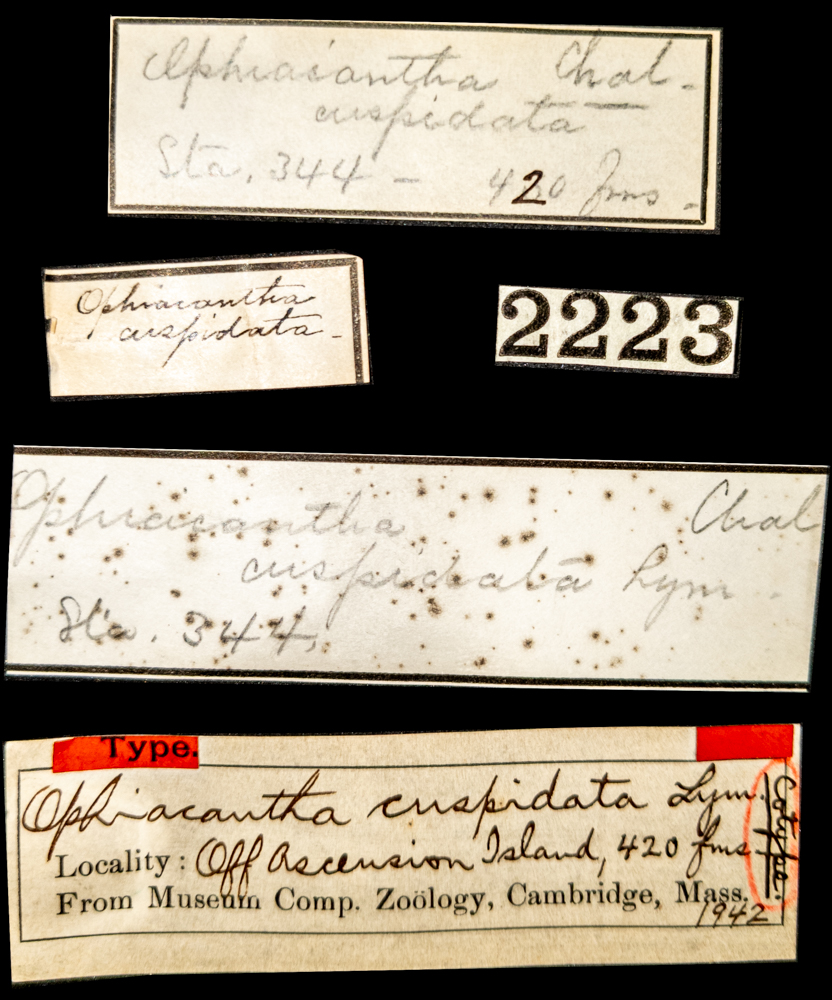 Ophiacantha Chal-
cuspidata
Sta. 344 - 420 fms -
Ophiacantha
cuspidata -
2223
Ophiacantha Chal
cuspidata Lym.
Sta. 344.
Type.
Ophiacantha cuspidata Lym.
Cotype.
Locality: Off Ascension Island, 420 fms
From Museum Comp. Zoölogy, Cambridge, Mass.
1942